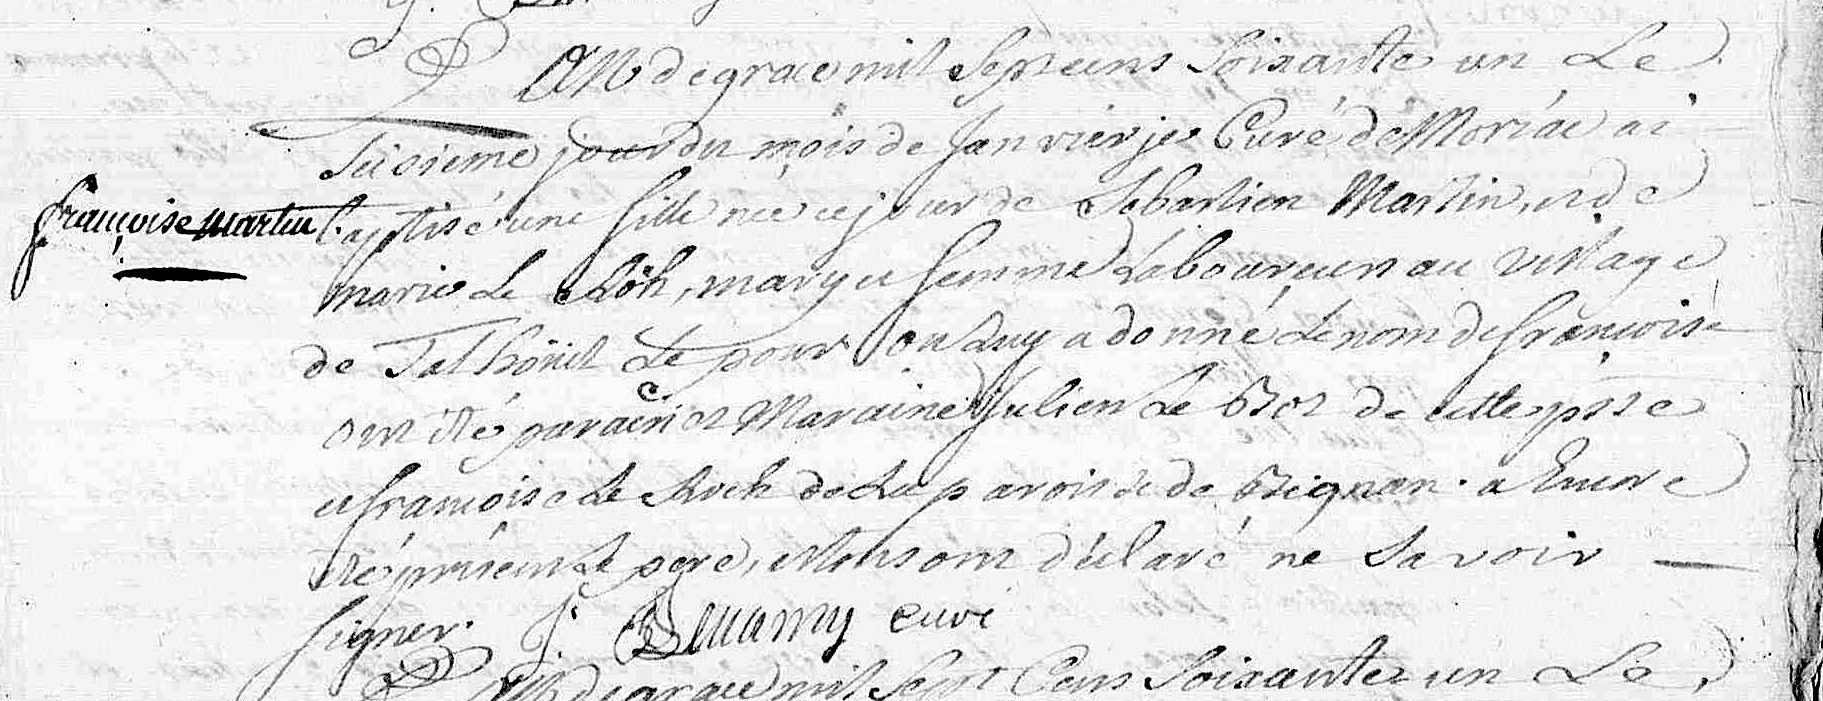 L'An de grace mil Sept cens Soixante un Le
Seisieme jour du mois de Janvier je Curé de Moréac ai
françoise martin
baptisé une fille née ce jour de Sebastien Martin, et de
marie Le, mary et femme Laboureurs au village
de Talhöuët Le pour on Luy a donné Le nom de françoise
ont été parain et Maraine Julien Le Bros de cette psse
et françoise Le de La paroisse de Bignan. a Encore
été présent Le pere, et tous ont déclaré ne Savoir
Signer. J. curé
L'An de grace mil Sept Cens Soixante un Le